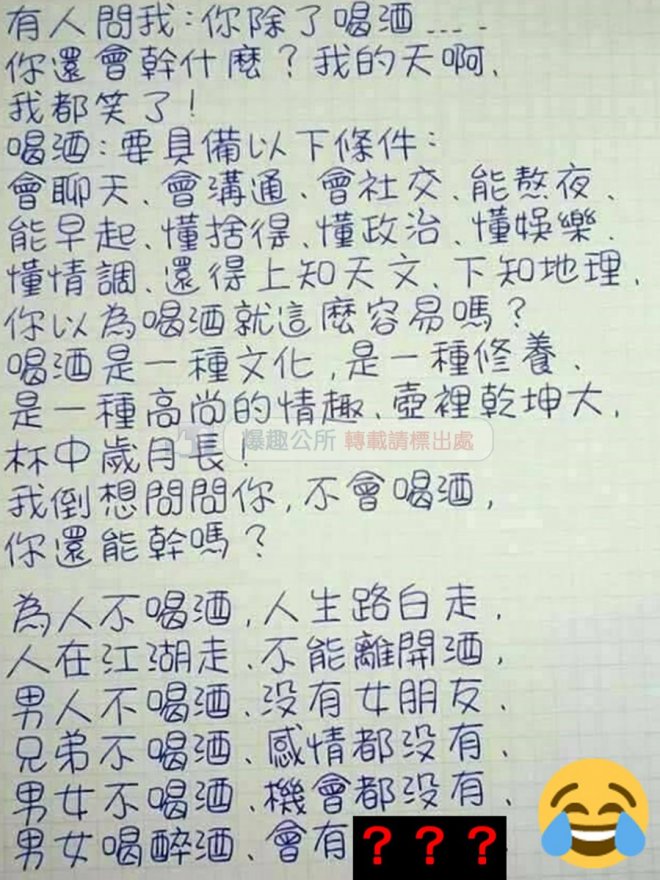 有人問我：你除了喝酒.....
你還會幹什麼？我的天啊、
我都笑了！
喝酒：要具備以下條件：
會聊天、會溝通、會社交、能熬夜、
能早起、懂捨得、懂政治、懂娛樂、
懂情調、還得上知天文、下知地理，
你以為喝酒就這麼容易嗎？
喝酒是一種文化，是一種修養、
是一種高尚的情趣、壺裡乾坤大，
爆趣公所 轉載請標出處
杯中歲月長！
我倒想問問你，不會喝酒，
你還能幹嗎？
為人不喝酒，人生路白走，
人在江湖走、不能離開酒，
男人不喝酒、沒有女朋友、
兄弟不喝酒、感情都沒有、
男女不喝酒、機會都沒有、
男女喝醉酒、會有？？？